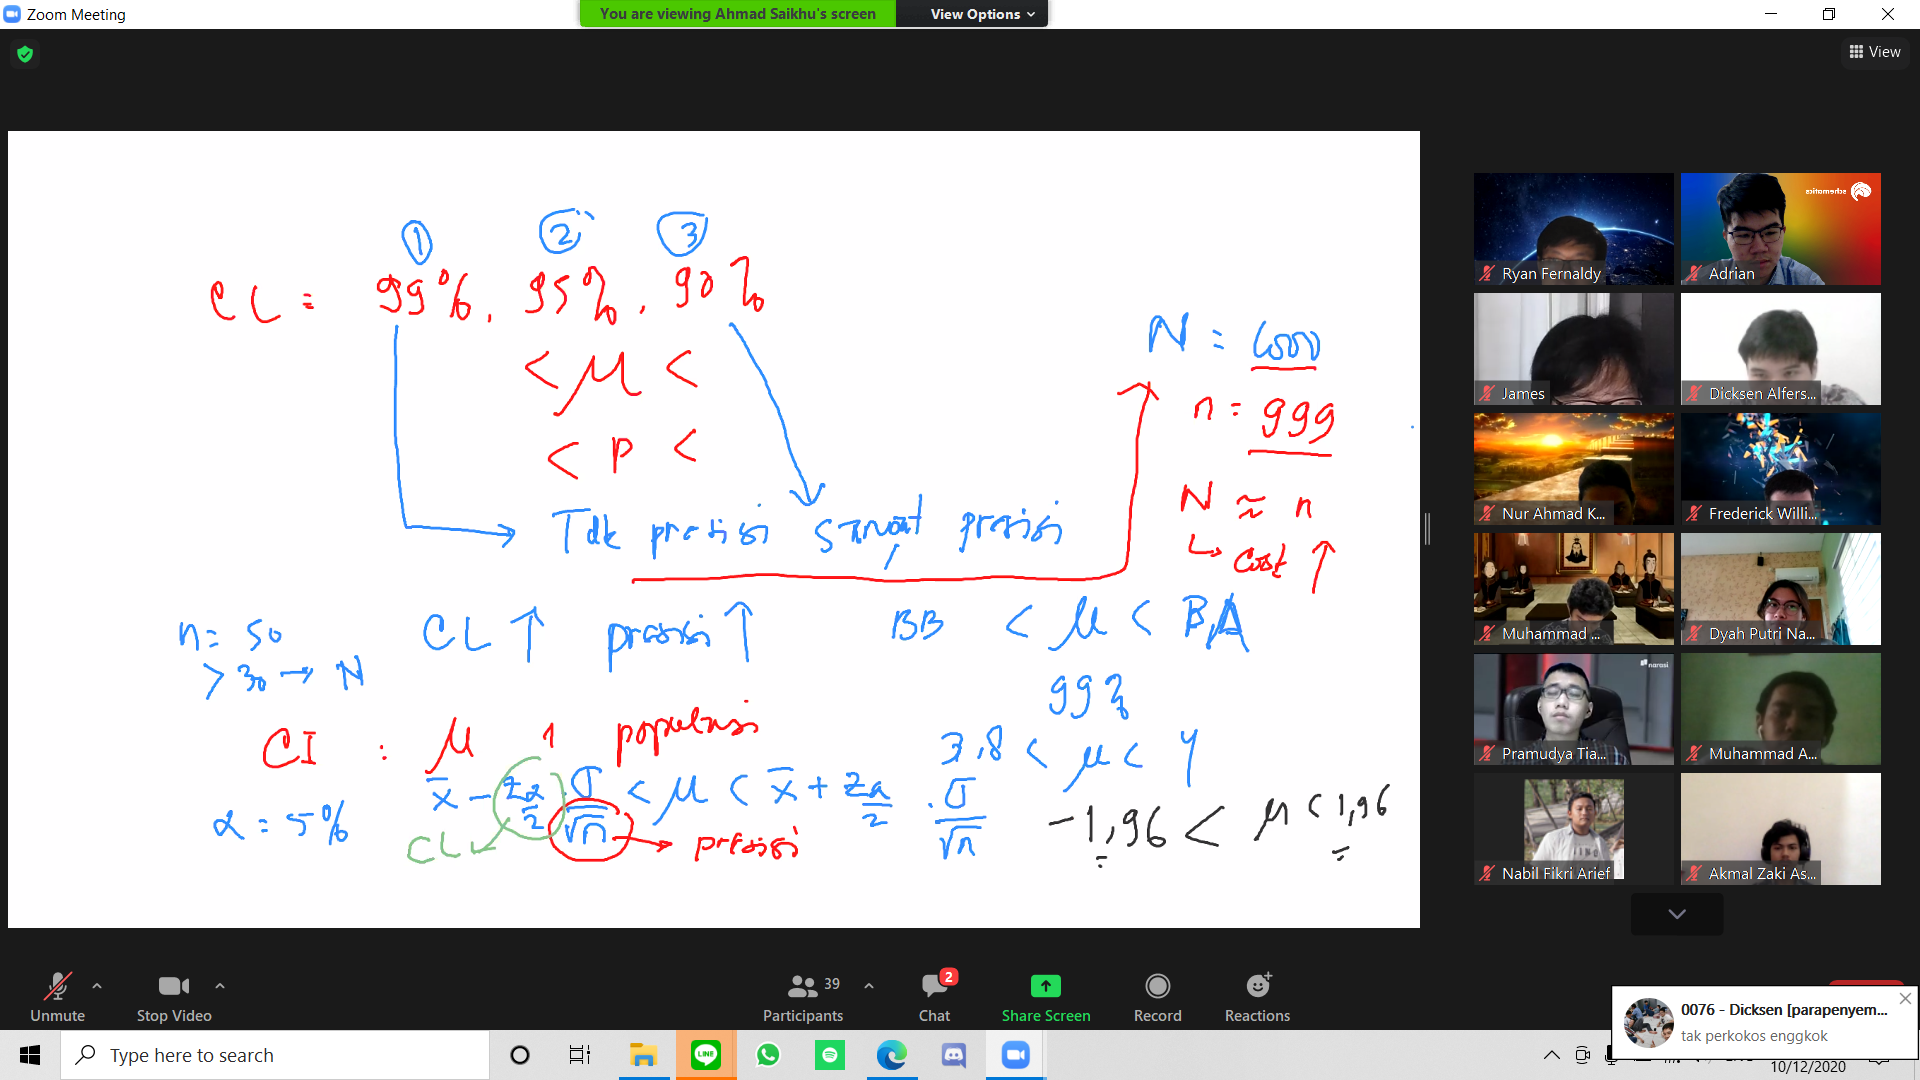 Zoom Meeting
You are viewing Ahmad Saikhu's screen
View Options
View
1 2 3
CL = 99%, 95%, 90%
< μ <
< p <
Tdk presisi sangat presisi
N = 1000
n = 999
N ≈ n
↳ cost ↑
n = 50
> 30 → N
CL ↑ presisi ↑
BB < μ < BA
99%
CI : μ 1 populasi
3,8 < μ < 4
α = 5%
x̄ - Zα/2 . σ/√n < μ < x̄ + Zα/2 . σ/√n
-1,96 < μ < 1,96
CL
presisi
Ryan Fernaldy
Adrian
schematics
James
Dicksen Alfers...
Nur Ahmad K...
Frederick Willi...
Muhammad ...
Dyah Putri Na...
narasi
Pramudya Tia...
Muhammad A...
Nabil Fikri Arief
Akmal Zaki As...
Unmute
Stop Video
39
Participants
2
Chat
Share Screen
Record
Reactions
0076 - Dicksen [parapenyem...
tak perkokos enggkok
Type here to search
LINE
10/12/2020